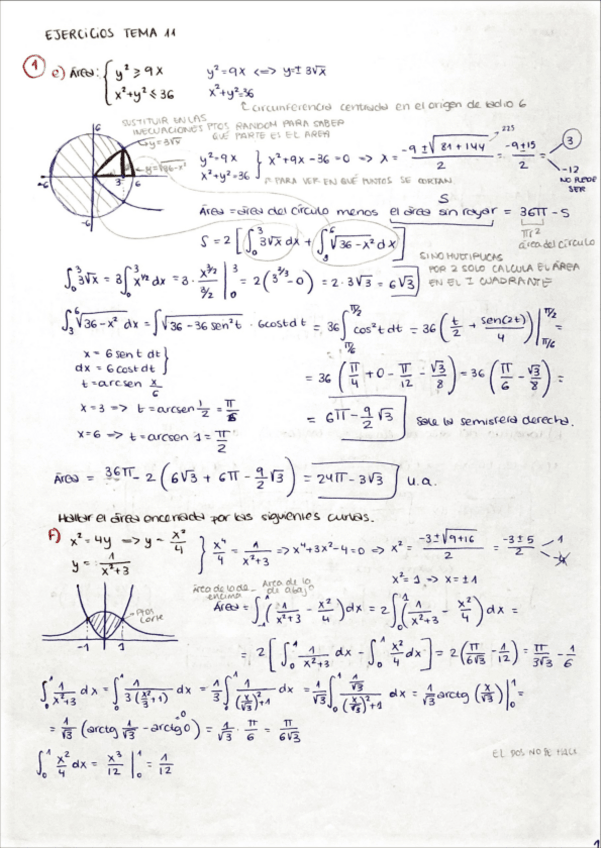 EJERCICIOS TEMA 11
1 e) Área: { y² ≥ 9x    y² = 9x <=> y = ± 3√x
x² + y² ≤ 36    x² + y² = 36
circunferencia centrada en el origen de radio 6
SUSTITUIR EN LAS
INECUACIONES PTOS RANDOM PARA SABER
QUÉ PARTE ES EL ÁREA
6
y = 3√x
-6 3 6
-6
y² = 9x
x² + y² = 36 } x² + 9x - 36 = 0 => x = (-9 ± √(81 + 144))/2 = (-9 ± 15)/2 = 3
225
-12
NO PUEDE
SER
PARA VER EN QUÉ PUNTOS SE CORTAN
S
Área = área del círculo menos el área sin rayar = 36π - S
πr²
área del círculo
S = 2 [∫₀³ 3√x dx + ∫₃⁶ √(36 - x²) dx]
SI NO MULTIPLICAS
POR 2 SOLO CALCULA EL ÁREA
EN EL I CUADRANTE
∫₀³ 3√x = 3∫₀³ x^(1/2) dx = 3 · x^(3/2)/(3/2) |₀³ = 2(3^(2/3) - 0) = 2 · 3√3 = 6√3
∫₃⁶ √(36 - x²) dx = ∫√(36 - 36 sen²t) · 6cost dt = 36 ∫_(π/6)^(π/2) cos²t dt = 36 (t/2 + sen(2t)/4) |_(π/6)^(π/2) =
x = 6 sen t dt
dx = 6 cost dt }
t = arcsen x/6
= 36 (π/4 + 0 - π/12 - √3/8) = 36 (π/6 - √3/8) =
x = 3 => t = arcsen 1/2 = π/6
= 6π - 9/2 √3    Solo la semiesfera derecha.
x = 6 => t = arcsen 1 = π/2
Área = 36π - 2 (6√3 + 6π - 9/2 √3) = 24π - 3√3 u.a.
Hallar el área encerrada por las siguientes curvas.
f) x² = 4y => y = x²/4
y = 1/(x² + 3) } x⁴/4 = 1/(x² + 3) => x⁴ + 3x² - 4 = 0 => x² = (-3 ± √(9 + 16))/2 = (-3 ± 5)/2 = 1
-4
x² = 1 => x = ±1
Área de la de encima - Área de la de abajo
Ptos corte
-1 1
Área = ∫₋₁¹ (1/(x² + 3) - x²/4) dx = 2∫₀¹ (1/(x² + 3) - x²/4) dx =
= 2 [∫₀¹ 1/(x² + 3) dx - ∫₀¹ x²/4 dx] = 2(π/(6√3) - 1/12) = π/(3√3) - 1/6
∫₀¹ 1/(x² + 3) dx = ∫₀¹ 1/(3(x²/3 + 1)) dx = 1/3 ∫₀¹ 1/((x/√3)² + 1) dx = 1/√3 ∫₀¹ (1/√3)/((x/√3)² + 1) dx = 1/√3 arctg (x/√3) |₀¹ =
= 1/√3 (arctg 1/√3 - arctg 0) = 1/√3 · π/6 = π/(6√3)
∫₀¹ x²/4 dx = x³/12 |₀¹ = 1/12
EL DOS NO SE HACE
1